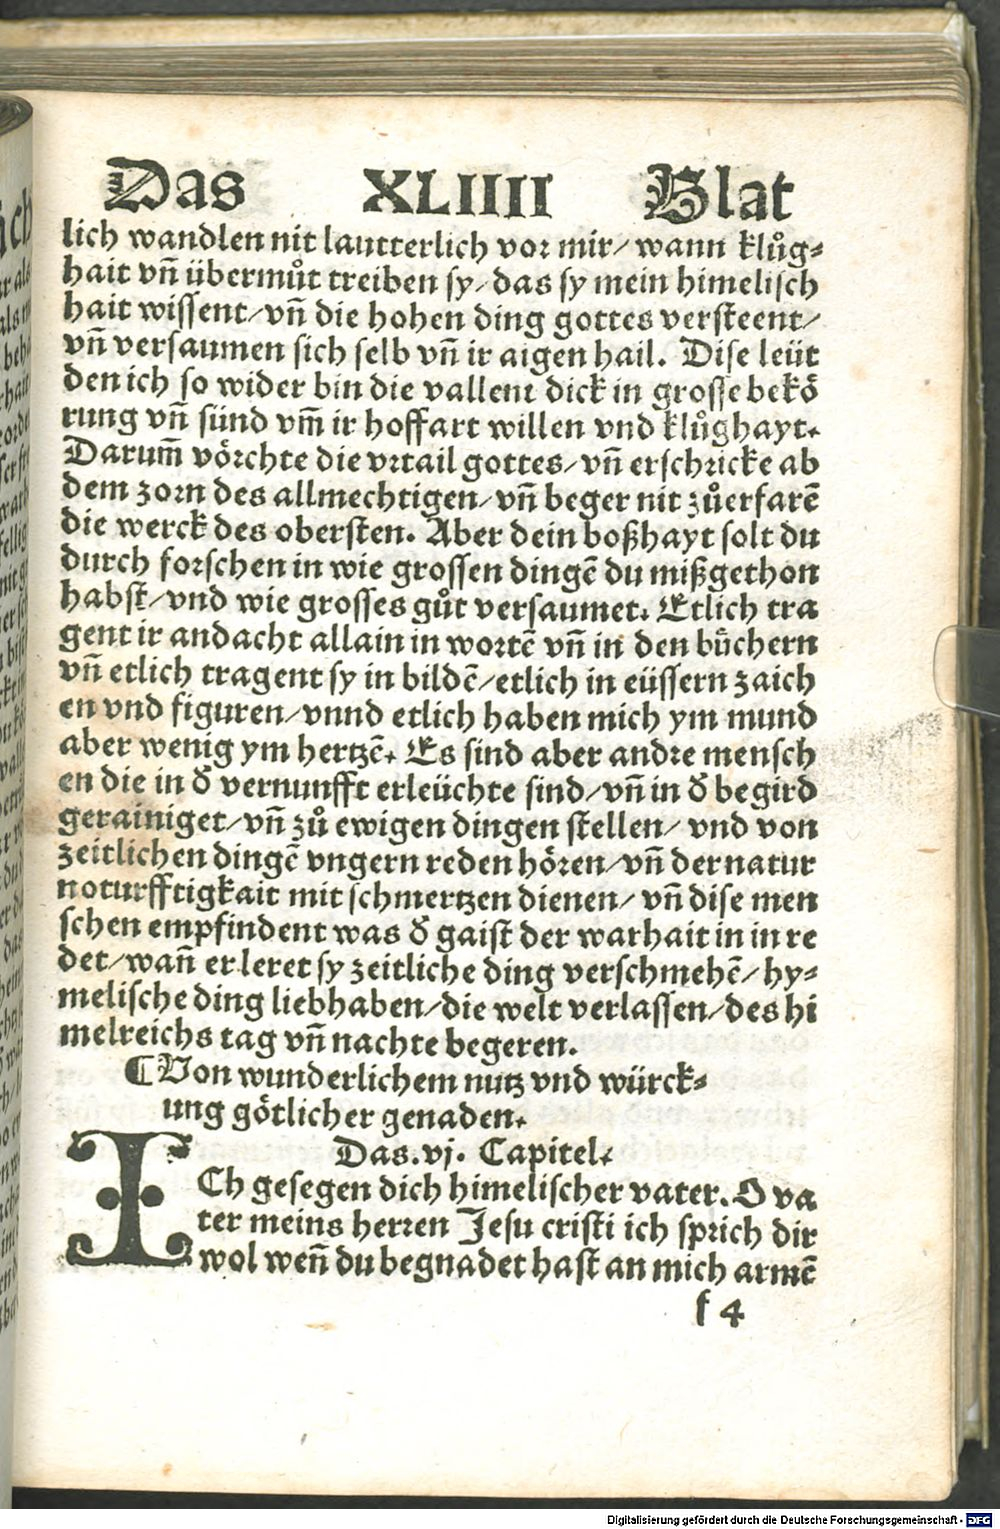 Das XLIIII Blat
lich wandlen nit lautterlich vor mir/ wann klůg⸗
hait vñ übermůt treiben sy/ das sy mein himelisch
hait wissent/ vñ die hohen ding gottes versteent/
vñ versaumen sich selb vñ ir aigen hail. Dise leüt
den ich so wider bin die vallent dick in grosse bekö
rung vñ sünd vm̃ ir hoffart willen vnd klůghayt.
Darum̃ vörchte die vrtail gottes/ vñ erschricke ab
dem zorn des allmechtigen/ vñ beger nit zůerfarē
die werck des obersten. Aber dein boßhayt solt du
durch forschen in wie grossen dingē du mißgethon
habst/ vnd wie grosses gůt versaumet. Etlich tra
gent ir andacht allain in wortē vñ in den bůchern
vñ etlich tragent sy in bildē/ etlich in eüssern zaich
en vnd figuren/ vnnd etlich haben mich ym mund
aber wenig ym hertzē. Es sind aber andre mensch
en die in d̓ vernunfft erleüchte sind/ vñ in d̓ begird
gerainiget/ vñ zů ewigen dingen stellen/ vnd von
zeitlichen dingē vngern reden hören/ vñ der natur
noturfftigkait mit schmertzen dienen/ vñ dise men
schen empfindent was d̓ gaist der warhait in in re
det/ wañ er leret sy zeitliche ding verschmehē/ hy⸗
melische ding liebhaben/ die welt verlassen/ des hi
melreichs tag vñ nachte begeren.
¶ Von wunderlichem nutz vnd würck⸗
ung götlicher genaden.
Das .vj. Capitel.
ICh gesegen dich himelischer vater. O va
ter meins herren Jesu cristi ich sprich dir
wol weñ du begnadet hast an mich armē
f 4
Digitalisierung gefördert durch die Deutsche Forschungsgemeinschaft - DFG